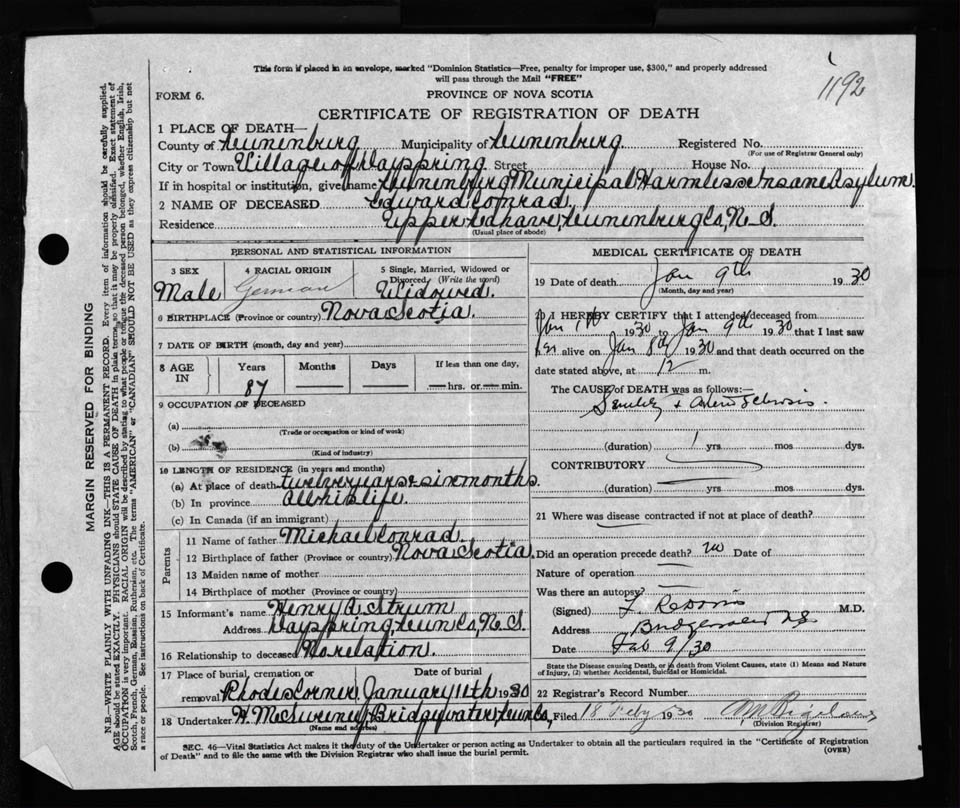 This form if placed in an envelope, marked "Dominion Statistics—Free, penalty for improper use, $300," and properly addressed
will pass through the Mail "FREE"
1192
FORM 6.
PROVINCE OF NOVA SCOTIA
CERTIFICATE OF REGISTRATION OF DEATH
1 PLACE OF DEATH—
County of Lunenburg Municipality of Lunenburg Registered No.
(For use of Registrar General only)
City or Town Village of Dayspring Street House No.
If in hospital or institution, give name Lunenburg Municipal Harmless Insane Asylum.
2 NAME OF DECEASED Edward Conrad,
Residence Upper Lahave, Lunenburg Co, N. S.
(Usual place of abode)
PERSONAL AND STATISTICAL INFORMATION
3 SEX
Male
4 RACIAL ORIGIN
German
5 Single, Married, Widowed or
Divorced (Write the word)
Widowed.
6 BIRTHPLACE (Province or country) Nova Scotia.
7 DATE OF BIRTH (month, day and year)
8 AGE IN
Years Months Days If less than one day,
87 hrs. or min.
9 OCCUPATION OF DECEASED
(a)
(Trade or occupation or kind of work)
(b)
(Kind of industry)
10 LENGTH OF RESIDENCE (in years and months)
(a) At place of death twelve years & six months.
(b) In province all his life.
(c) In Canada (if an immigrant)
Parents
11 Name of father Michael Conrad
12 Birthplace of father (Province or Country) Nova Scotia
13 Maiden name of mother
14 Birthplace of mother (Province or Country)
15 Informant's name Henry A. Strum
Address Dayspring, Lun Co, N. S.
16 Relationship to deceased No relation.
17 Place of burial, cremation or
removal Rhodes Corner
Date of burial
January 11th 1930
18 Undertaker H. McSweeney Bridgewater Lun Co,
(Name and address)
MEDICAL CERTIFICATE OF DEATH
19 Date of death Jan 9th 1930
(Month, day and year)
20 I HEREBY CERTIFY that I attended deceased from
Jan 1st 1930 to Jan 9th 1930 that I last saw
him alive on Jan 8th 1930 and that death occurred on the
date stated above, at 12 m.
The CAUSE of DEATH was as follows:—
Senility +
(duration) 1 yrs mos dys.
CONTRIBUTORY
(duration) yrs mos dys.
21 Where was disease contracted if not at place of death?
Did an operation precede death? no Date of
Nature of operation
Was there an autopsy?
(Signed) M.D.
Address Bridgewater NS
Date Feb 9/30
State the Disease causing Death, or in death from Violent Causes, state (1) Means and Nature
of Injury, (2) whether Accidental, Suicidal or Homicidal.
22 Registrar's Record Number
Filed 18 Feby 1930
(Division Registrar)
SEC. 46—Vital Statistics Act makes it the duty of the Undertaker or person acting as Undertaker to obtain all the particulars required in the "Certificate of Registration
of Death" and to file the same with the Division Registrar who shall issue the burial permit.
(OVER)
MARGIN RESERVED FOR BINDING
N.B.—WRITE PLAINLY WITH UNFADING INK—THIS IS A PERMANENT RECORD. Every item of information should be carefully supplied.
AGE should be stated EXACTLY. PHYSICIANS should STATE CAUSE OF DEATH in plain terms, so that it may be properly classified. Exact statement of
OCCUPATION is very important. RACIAL ORIGIN will be described by stating to what people or tongue the deceased person belonged, whether English, Irish,
Scotch, French, German, Russian, Ruthenian, etc. The terms "AMERICAN" or "CANADIAN" SHOULD NOT BE USED as they express citizenship but not
a race or people. See instructions on back of Certificate.